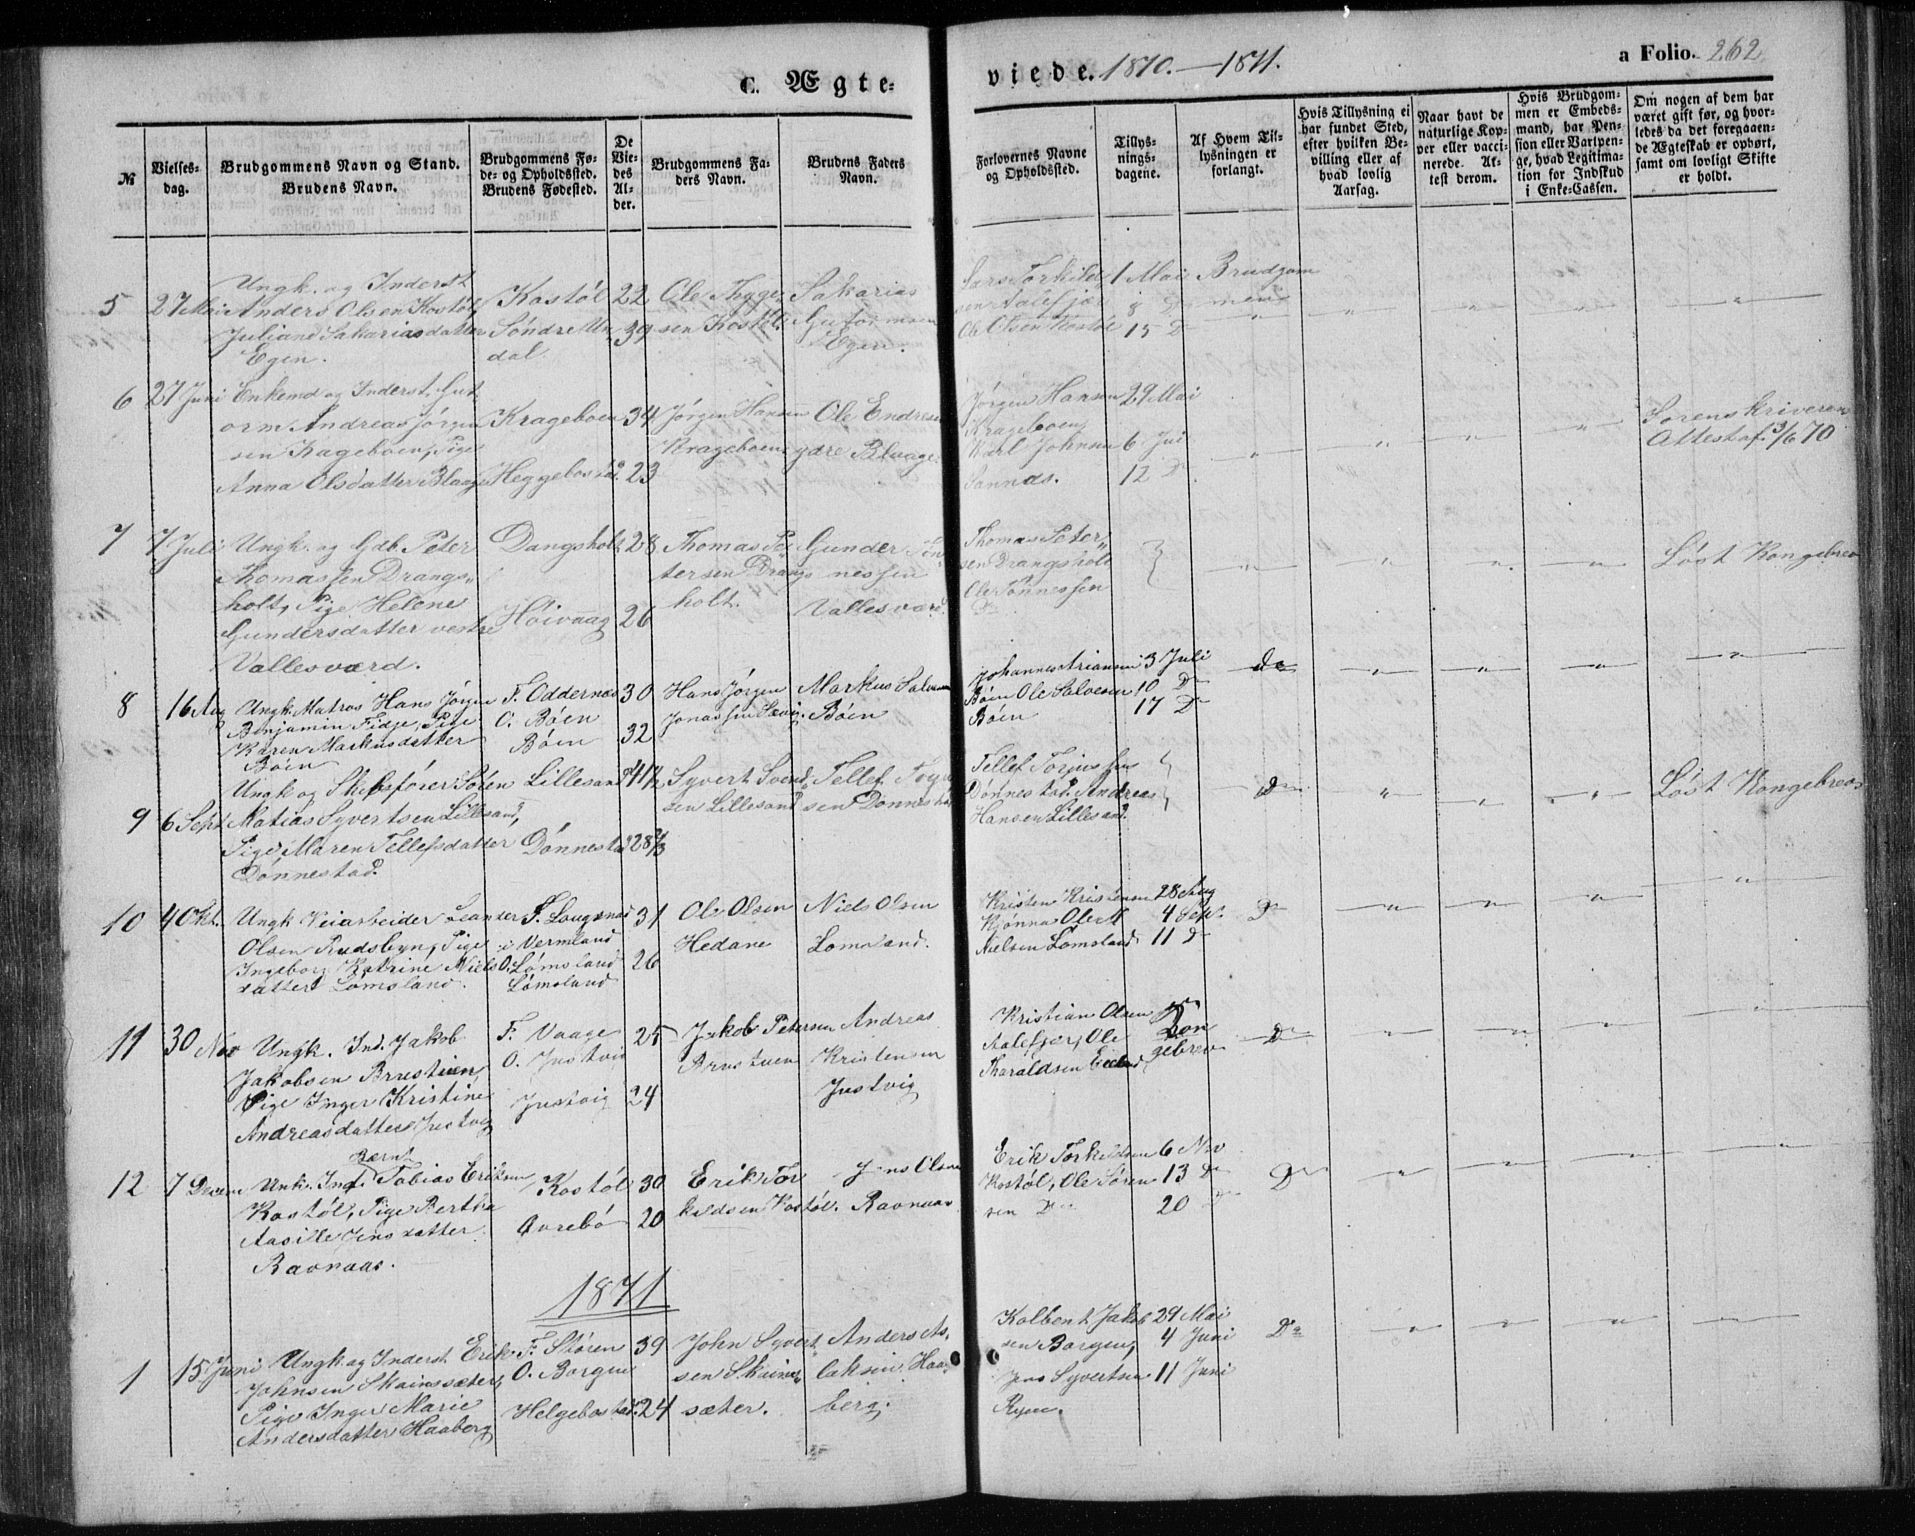 C. Ægte-
viede. 1870.—1871.
a Folio. 262
№
Vielses-
dag.
Brudgommens Navn og Stand.
Brudens Navn.
Brudgommens Fø-
de- og Opholdssted.
Brudens Fødested.
De
Vie-
des
Al-
der.
Brudgommens Fa-
ders Navn.
Brudens Faders
Navn.
Forlovernes Navne
og Opholdssted.
Tillys-
nings-
dagene.
Af Hvem Til-
lysningen er
forlangt.
Hvis Tillysning ei
har fundet Sted,
efter hvilken Be-
villing eller af
hvad lovlig
Aarsag.
Naar havt de
naturlige Kop-
per eller vacci-
nerede. At-
test derom.
Hvis Brudgom-
men er Embeds-
mand, har Pen-
sion eller Vartpen-
ge, hvad Legitima-
tion for Indskud
i Enke-Cassen.
Om nogen af dem har
været gift før, og hvor-
ledes da det foregaaen-
de Ægteskab er ophørt,
samt om lovligt Skifte
er holdt.
5
27 Mai
Ungk. og Inderst
Anders Olsen Kostøl,
Juliane Sakariasdatter
Egen.
Kostøl
Søndre Un
dal
22
39
Ole Tygge
sen Kostøl
Sakarias
Gutormsen
Egen.
Lars Torkild
sen Aalefjær
Ole Olsen Kostøl
1 Mai
8 Do
15 Do
Brudgom
men
6
27 Juni
Enkemd og Inderst, Gut
orm Andreas Jörgen
sen Kageboen, Pige
Anna Olsdatter Blaage
Krageboen
Heggebostad
34
23
Jørgen Hansen
Krageboen
Ole Endresen
ydre Blaage
Jørgen Hansen
Krageboen
Karl Johnsen
Sannes.
29 Mai
6 Jui
12 Do
Sorenskriveren
Attest af 3/6 70
7
7 Juli
Ungk. og Gdb. Peter
Thomassen Drangs-
holt, Pige Helene
Gundersdatter vestre
Vallesværd.
Dangsholt
Høivaag
28
26
Thomas Pe
tersen Drangs
holt.
Gunder Tøn
nessen
Vallesværd
Thomas Peter-
sen Drangsholt
Ole Tønnessen
Do
Løst Kongebrev
8
16 Aug
Ungk. Matros Hans Jörgen
Benjamin Fidje, Pige
Karen Markusdatter
Böen
F. Oddernæs
O. Böen
Böen
30
32
Hans Jörgen
Jonassen
Markus Salvesen
Böen
Johannes Ariansen
Böen Ole Salvesen
Böen
3 Juli
10 Do
17 Do
Do
9
6 Sept
Ungk og Skibsfører Sören
Matias Syvertsen Lillesand,
Pige Maren Tellefsdatter
Dønnestad.
Lillesand
Dønnestad
41
28
Syvert Svend
sen Lillesand
Tellef Torju
sen Dønnestad
Tellef Torjussen
Dønnestad. Andreas
Hansen Lillesand.
Do
Løst Kongebrev
10
4 Okt.
Ungk Veiarbeider Leander
Olsen Rudsbyn, Pige
Ingeborg Katrine Niels
datter Lømsland.
i Vermland
O. Lømsland
Lømsland
31
26
Ole Olsen
Hedane
Niels Olsen
Lomsland.
Kristen Kristensen
Kjønna Ole
Nielsen Lomsland
28 Aug
4 Sept.
11 Do
Do
11
30 Nov
Ungk. Ind. Jakob
Jakobsen Brustuen,
Pige Inger Kristine
Andreasdatter Justvig
F. Vaage
O. Justvig
Justvig
25
24
Jakob Petersen
Arnstuen
Andreas
Kristensen
Justvig
Kristian Olsen
Aalefjær, Ole
Tharaldsen
Kon
gebrev
Do
12
7 Decem
Unk. Ind. Bernt Tobias Eriksen
Kostøl, Pige Bertha
Aasille Jensdatter
Ravnaas.
Kostöl
Øvrebö
30
20
Erik Tor
kildsen Kostöl.
Jens Olsen
Ravnaas
Erik Torkildsen
Kostöl, Ole Sören
sen Do
6 Nov
13 Do
20 Do
Do
1871
1
15 Juni
Ungk og Inderst Erik
Johnsen Skainssæter,
Pige Inger Marie
Andersdatter Haaberg
F. Støren
O. Borgen
Helgebostad.
39
24
John Syvert
sen Skains-
sæter.
Anders As,
laksen Haa,
berg.
Kolbent Jakob
sen Borgen,
Jens Syvertsen
Ryen.
29 Mai
4 Juni
11 Juni
Do